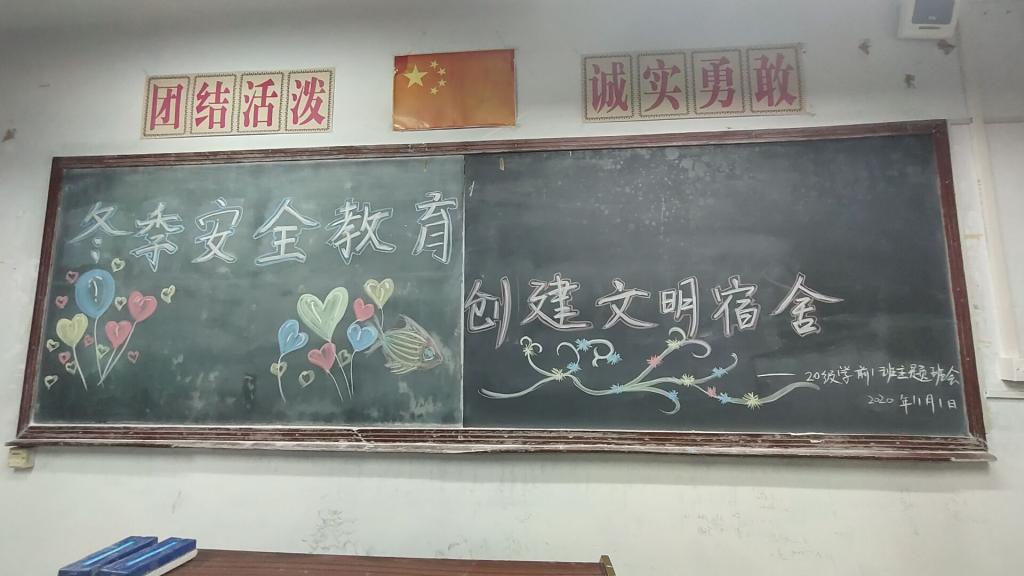 团结活泼
诚实勇敢
冬季安全教育
创建文明宿舍
——20级学前1班主题班会
2020年11月1日